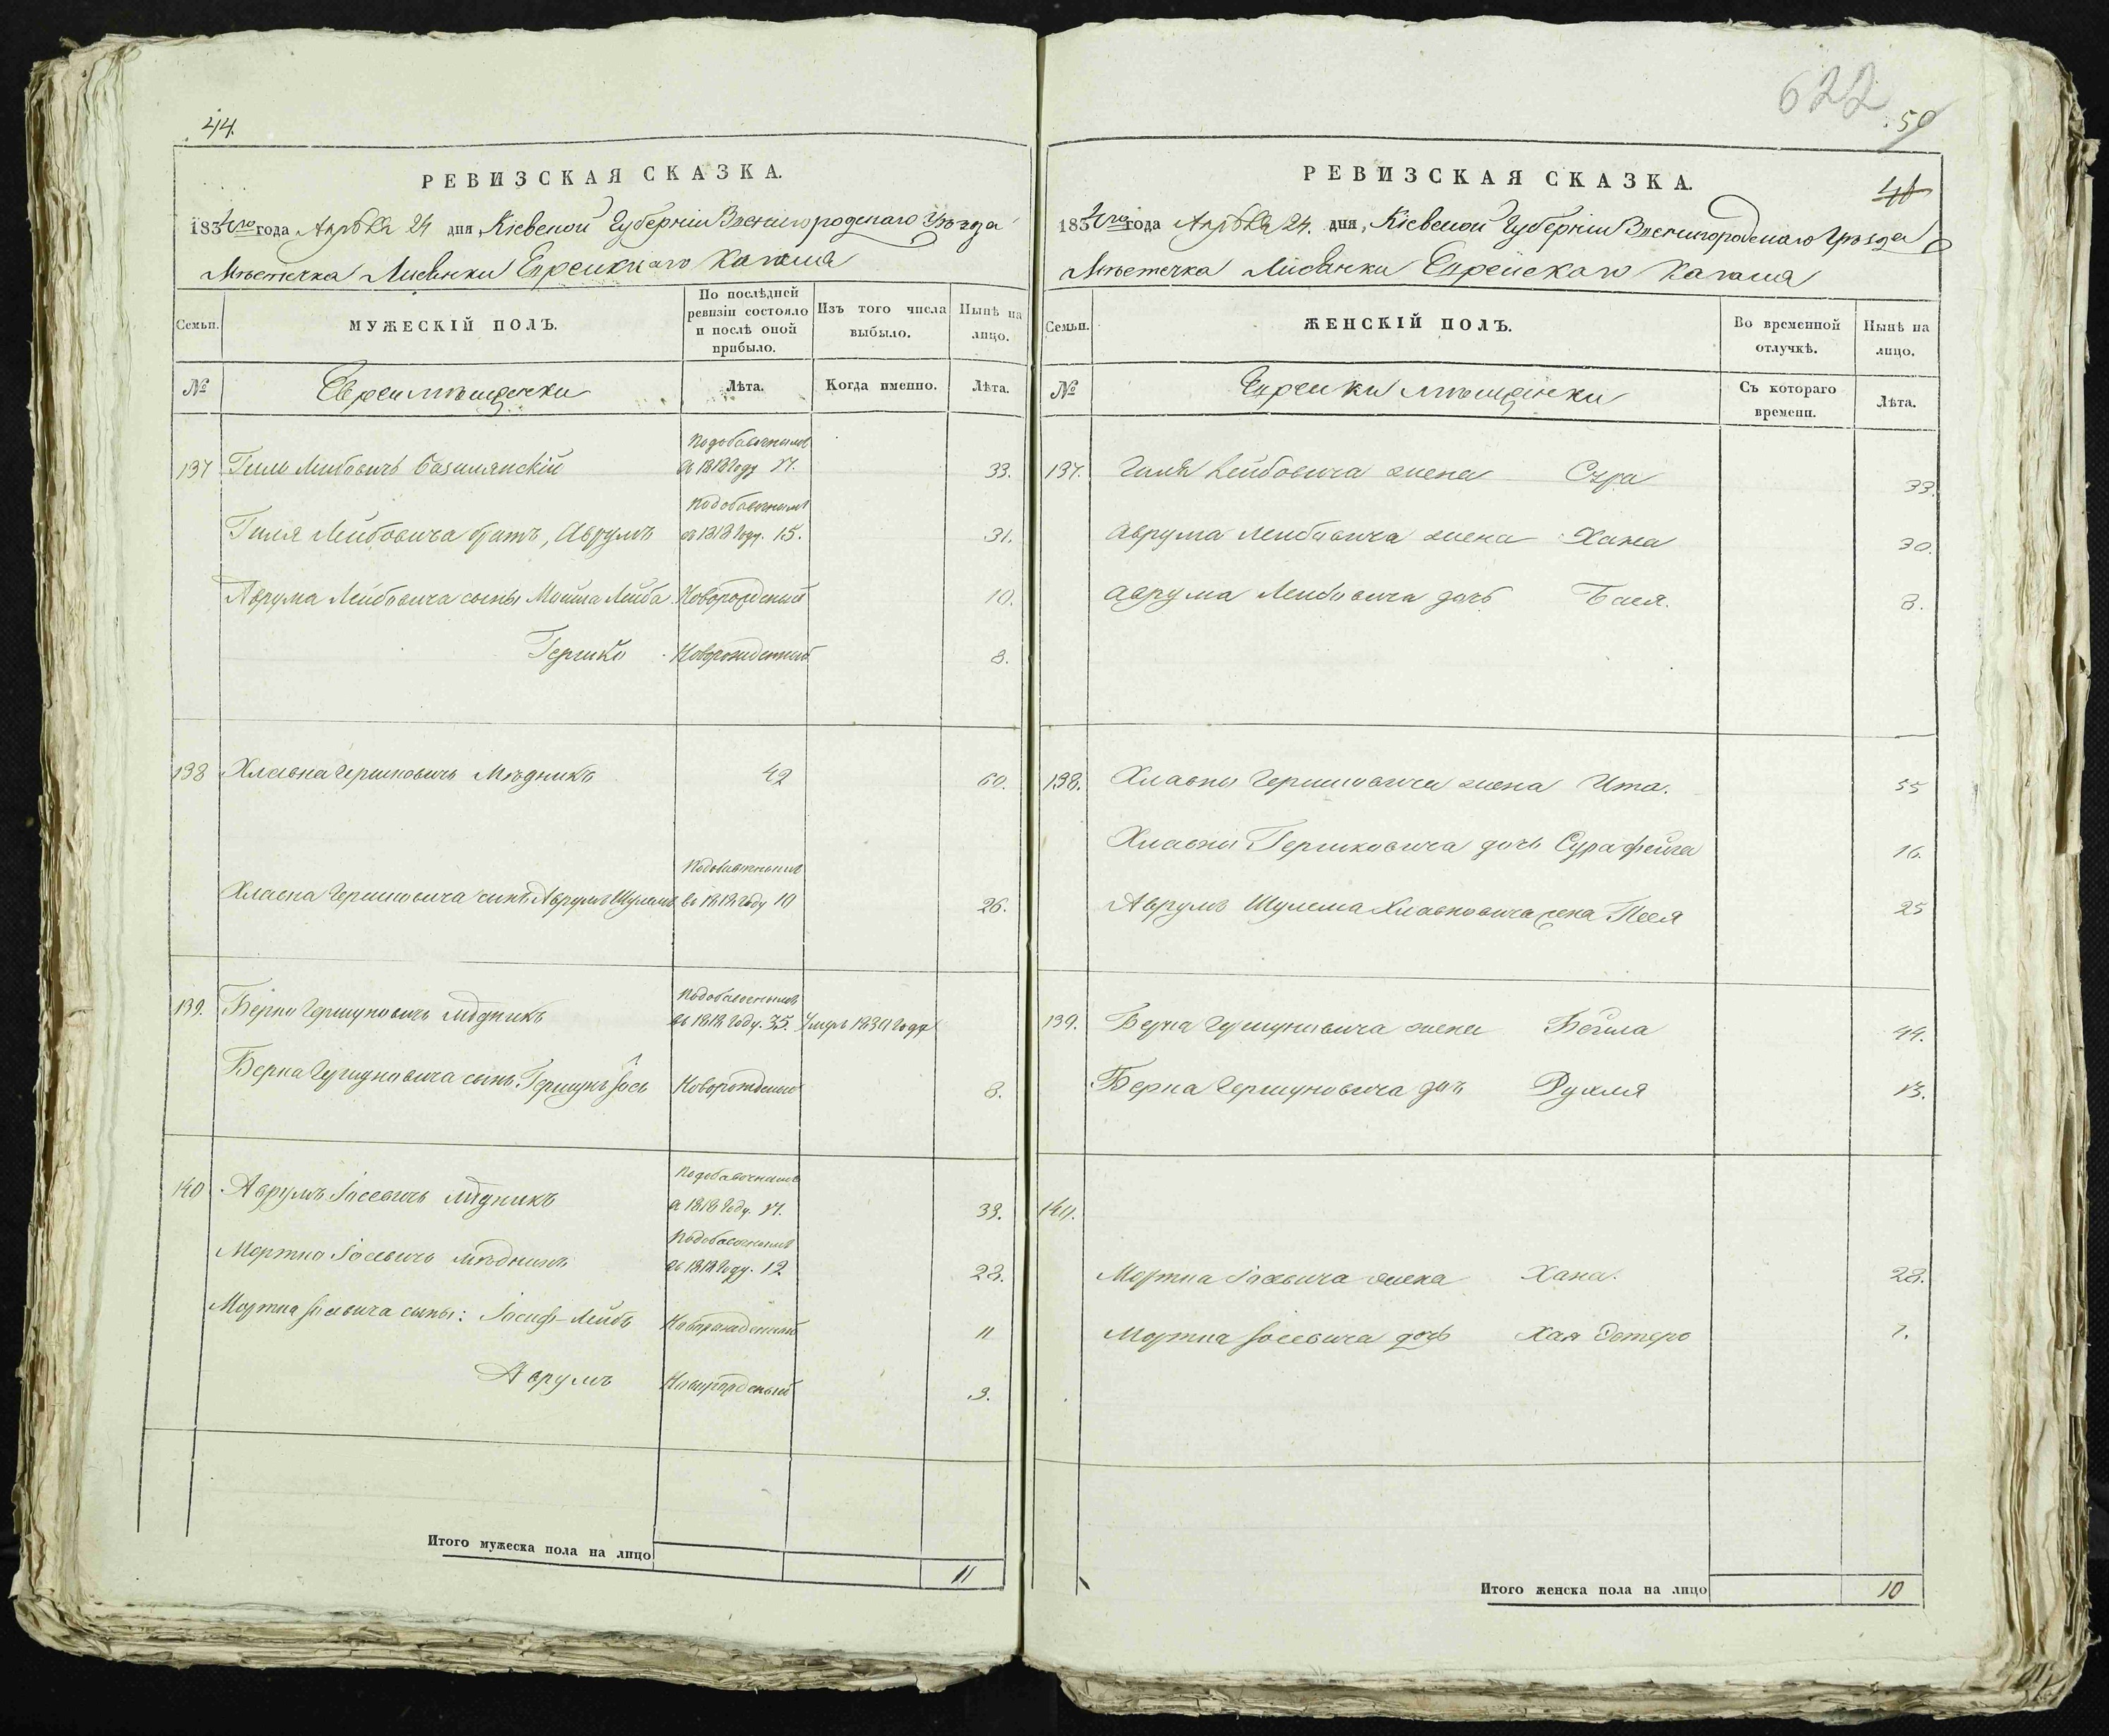 44.
РЕВИЗСКАЯ СКАЗКА.
1834го года Апрѣля 24 дня, Кіевской Губерніи Звенигородскаго Уѣзда
Мѣстечка Лисянки Еврейскаго Кагала
Семьи.
МУЖЕСКІЙ ПОЛЪ.
По послѣдней ревизіи состояло и послѣ оной прибыло.
Изъ того числа выбыло.
Нынѣ на лицо.
№
Евреи мѣщанки
Лѣта.
Когда именно.
Лѣта.
Подобавочнымъ
137 Гиль Лейбовичъ въ 1818 Году 17. 33.
Подобавочнымъ
Гиля Лейбовича братъ, Аврумъ въ 1818 Году. 15. 31.
Аврума Лейбовича сыны Мошка Лейба Новорожденый 10.
Гершко Новорожденный 8.
138 Хлавна Гершковичъ Мѣдникъ 42 60.
Подобавочнымъ
Хлавна Гершковича сынъ Аврумъ Шулимъ въ 1818 Году 10 26.
Подобавочнымъ
139. Берко Гершуновичъ мѣдникъ въ 1818 Году. 35. Умеръ 1830 Года
Берка Гершуновича сынъ Гершунъ Іось Новорожденый 8.
Подобавочнымъ
140 Аврумъ Іосевичъ мѣдникъ въ 1818 Году. 17. 33.
Подобавочнымъ
Мортко Іосевичъ мѣдникъ въ 1818 Году. 12 28.
Мортка Іосевича сыны: Іосиф-Лейбъ Новорожденный 11
Аврумъ Новорожденый 3.
Итого мужеска пола на лицо 11
622
59
41
РЕВИЗСКАЯ СКАЗКА.
1834го года Апрѣля 24. дня, Кіевской Губерніи Звенигородскаго Уѣзда
Мѣстечка Лисянки Еврейскаго Кагала
Семьи.
ЖЕНСКІЙ ПОЛЪ.
Во временной отлучкѣ.
Нынѣ на лицо.
№
Еврейки мѣщанки
Съ котораго времени.
Лѣта.
137. Гиля Лейбовича жена Сура 33.
Аврума Лейбовича жена Хана 30.
Аврума Лейбовича дочь Бася. 8.
138. Хлавны Гершковича жена Ита. 55
Хлавны Гершковича дочь Сура фейга 16.
Аврумъ Шулема Хлавновича жена Песя 25
139. Берка Гершуновича жена Бейла 44.
Берка Гершуновича дочь Рухля 13.
140.
Мортка Іосевича жена Хана. 28.
Мортка Іосевича дочь Хая Эстеръ 7.
Итого женска пола на лицо 10